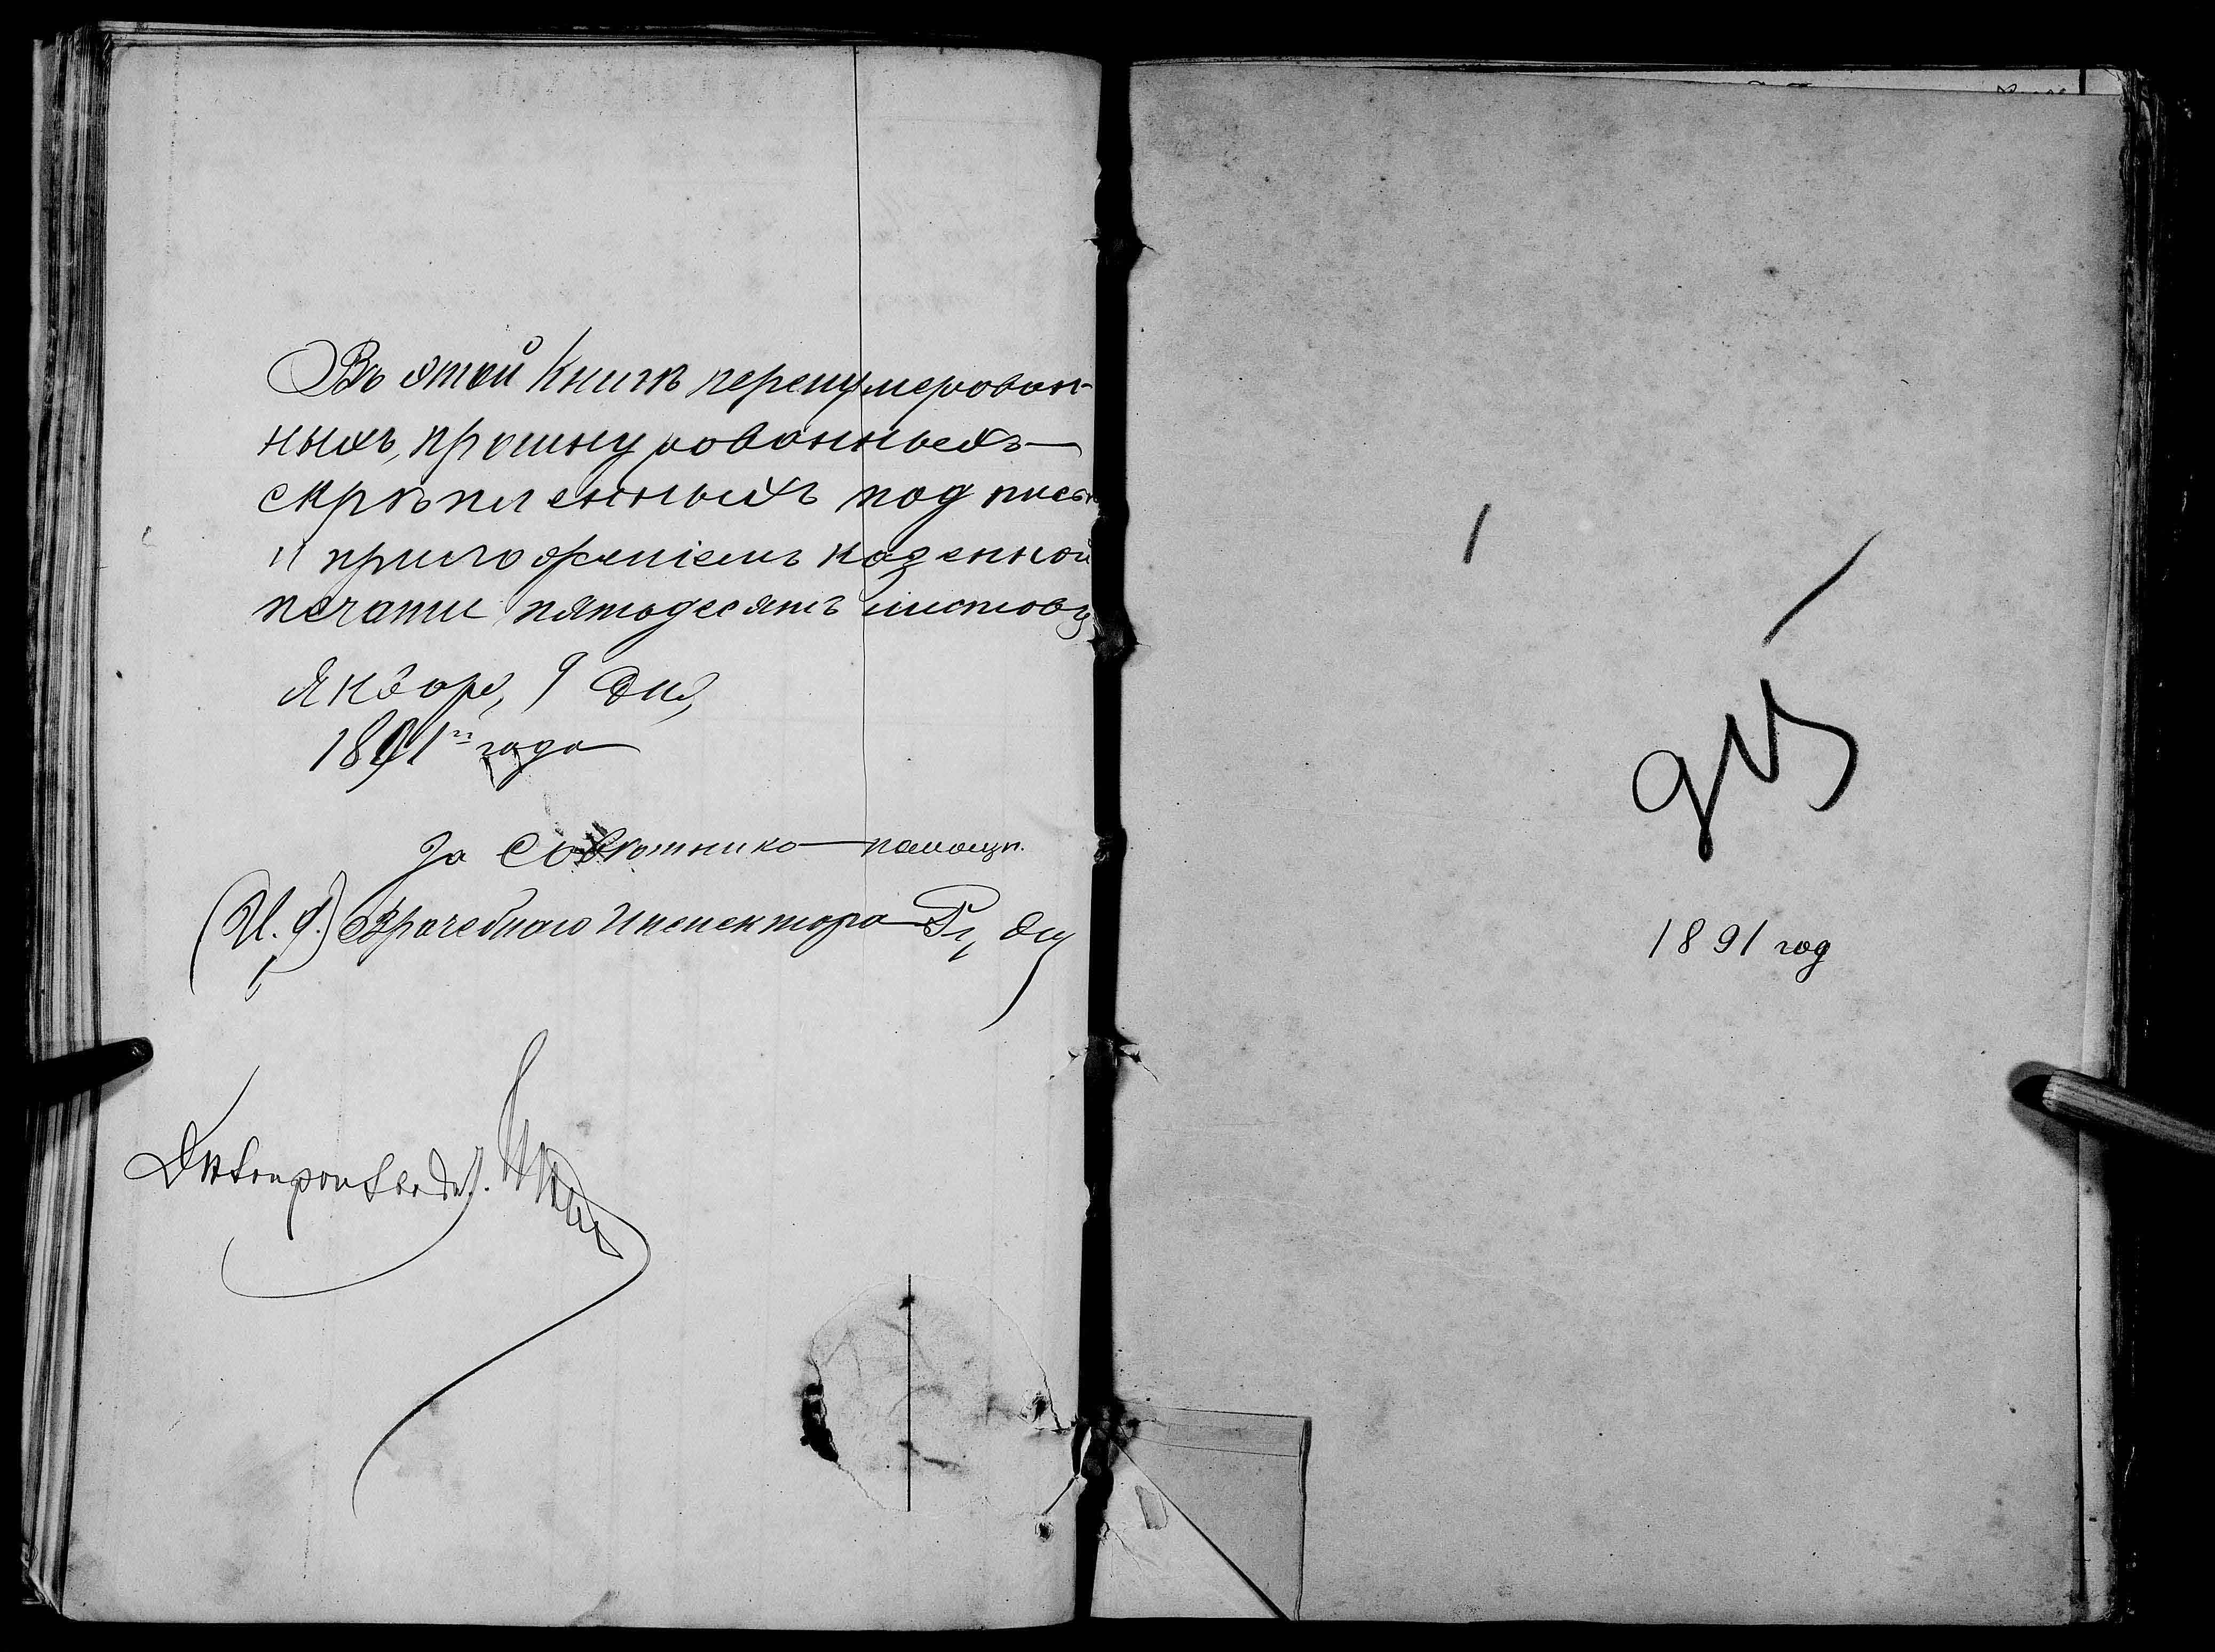 Въ этой Книгѣ перенумерован-
ныхъ, прошнурованныхъ
скрѣпленныхъ подпись
и приложеніемъ казенной
печати пятьдесятъ листовъ
Января, 9 дня,
1891 года
За Совѣтника помощн.
(И. д.) Врачебнаго Инспектора
1891 год